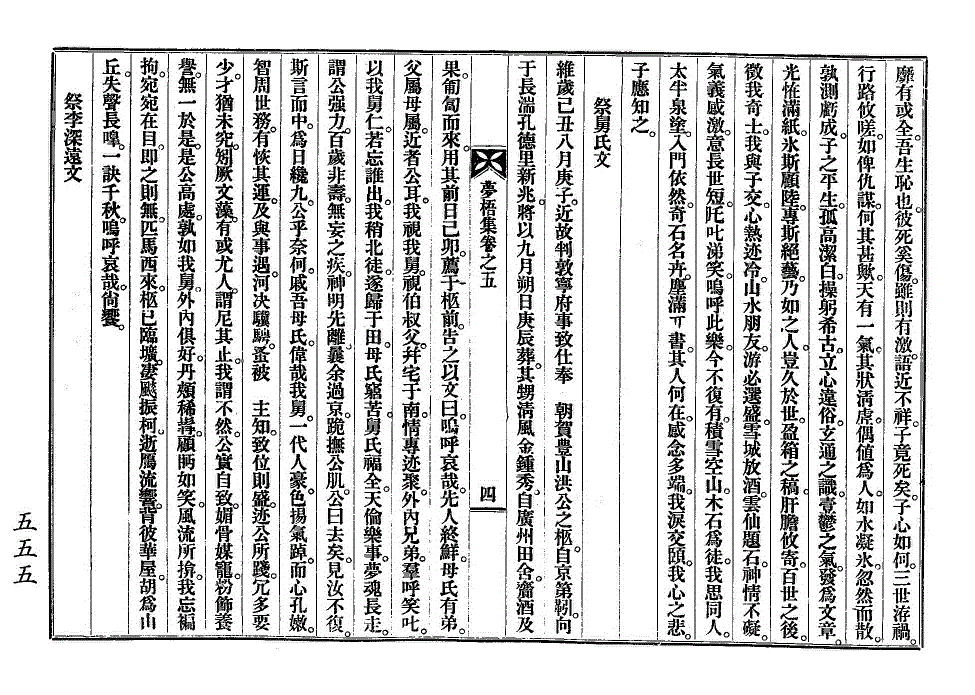 靡有或全。吾生恥也。彼死奚傷。雖則有激。語近不祥。子竟死矣。子心如何。三世洊禍。
行路攸嗟。如俾仇謀。何其甚歟。天有一氣。其狀淸虛。偶値爲人。如水凝氷。忽然而散。
孰測虧成。子之平生。孤高潔白。操躬希古。立心違俗。玄通之識。壹鬱之氣。發爲文章。
光恠滿紙。氷斯顧陸。專斯絕藝。乃如之人。豈久於世。盈箱之稿。肝膽攸寄。百世之後。
徵我奇士。我與子交。心熱迹冷。山水朋友。游必選盛。雪城放酒。雲仙題石。神情不礙。
氣義感激。意長世短。吒叱涕笑。嗚呼此樂。今不復有。積雪空山。木石爲徒。我思同人。
太半泉塗。入門依然。奇石名卉。塵滿丌書。其人何在。感念多端。我淚交頤。我心之悲。
子應知之。
祭舅氏文
維歲己丑八月庚子。近故判敦寧府事致仕奉 朝賀豊山洪公之柩。自京第靷。向
于長湍孔德里新兆。將以九月朔日庚辰葬。其甥淸風金鍾秀。自廣州田舍。齎酒及
夢梧集卷之五 四
果。匍匐而來。用其前日己卯。薦于柩前。告之以文曰。嗚呼哀哉。先人終鮮。母氏有弟。
父屬母屬。近者公耳。我視我舅。視伯叔父。幷宅于南。情專迹聚。外內兄弟。羣呼笑叱。
以我舅仁。若忘誰出。我稍北徒。遂歸于田。母氏竆苦。舅氏福全。天倫樂事。夢魂長走。
謂公强力。百歲非壽。無妄之疾。神明先離。曩余過京。跪撫公肌。公曰去矣。見汝不復。
斯言而中。爲日纔九。公乎奈何。戚吾母氏。偉哉我舅。一代人豪。色揚氣踔。而心孔嫩。
智周世務。有恢其運。及與事遇。河决驥騁。蚤被 主知。致位則盛。迹公所踐。冗多要
少。才猶未究。矧厥文藻。有或尤人。謂尼其止。我謂不然。公實自致。媚骨媒寵。粉飾養
譽。無一於是。是公高處。孰如我舅。外內俱好。丹頰稀髯。顧眄如笑。風流所揜。我忘褊
拘。宛宛在目。卽之則無。匹馬西來。柩已臨壙。凄飇振柯。逝鴈流響。背彼華屋。胡爲山
丘。失聲長嘷。一訣千秋。嗚呼哀哉。尙饗。
祭李深遠文
五五五